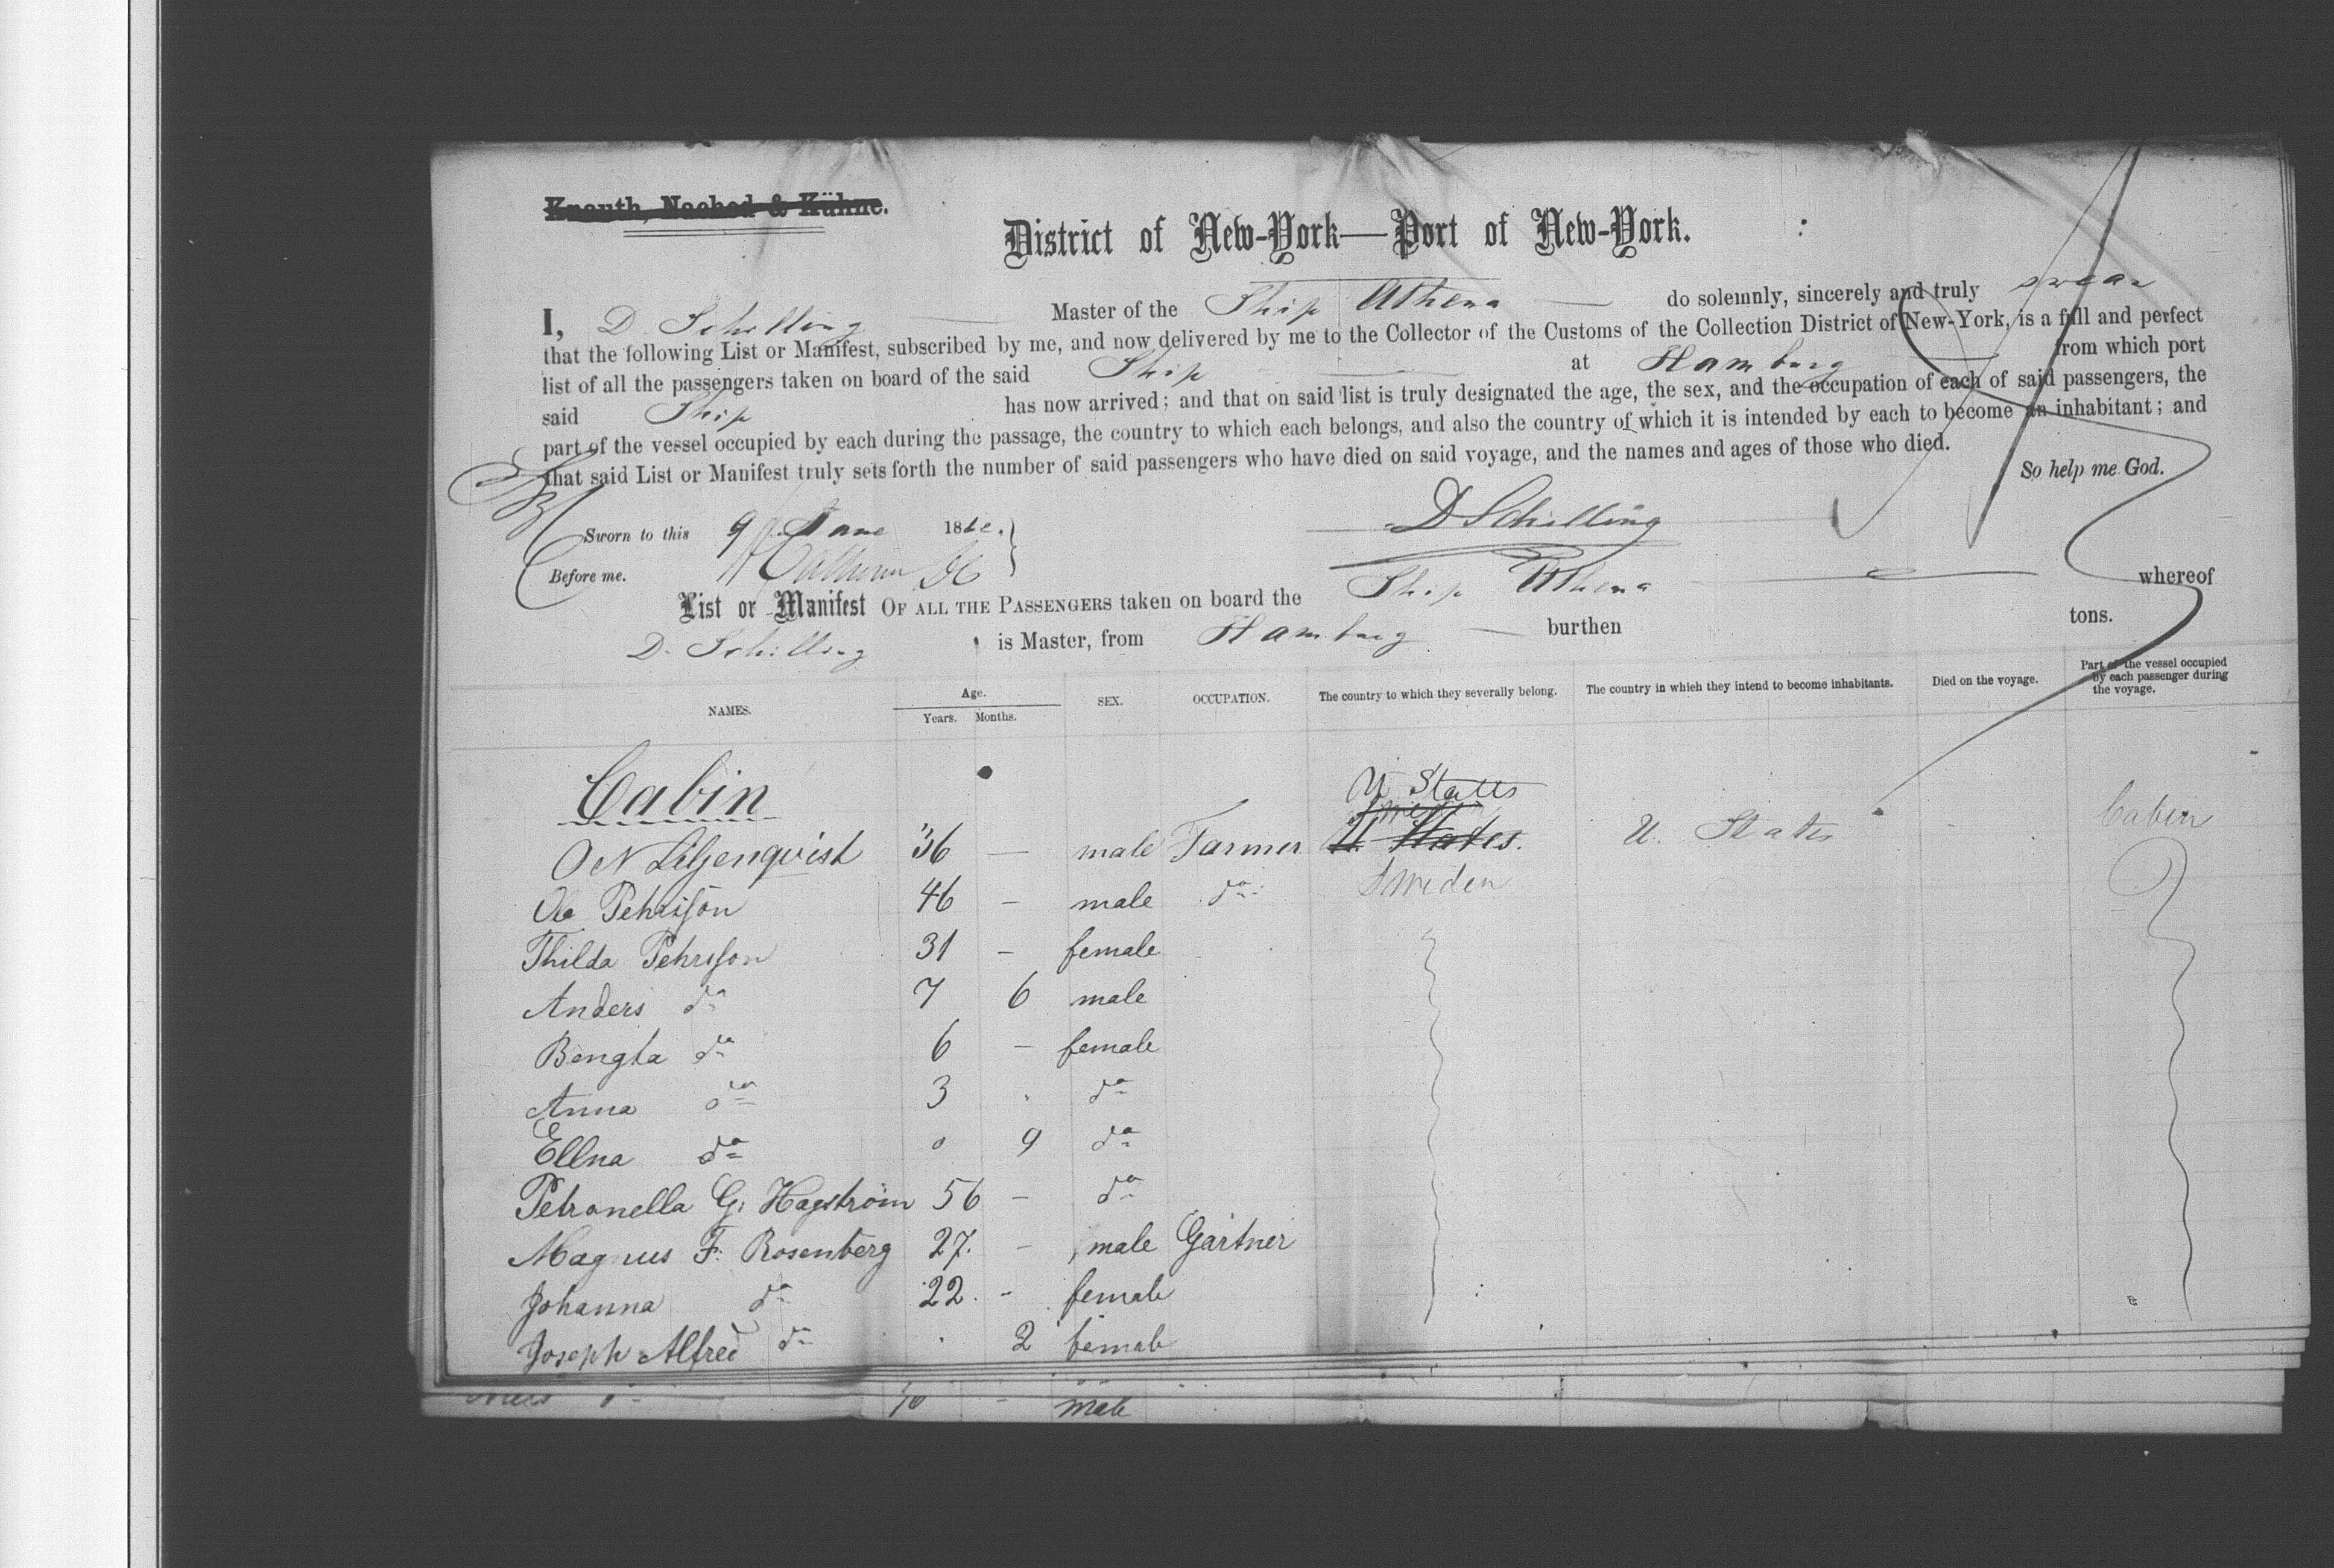 Knauth, Nachod & Kühne.
District of New-York—Port of New-York.
I, D. Schilling Master of the Ship Athena do solemnly, sincerely and truly swear
that the following List or Manifest, subscribed by me, and now delivered by me to the Collector of the Customs of the Collection District of New-York, is a full and perfect
list of all the passengers taken on board of the said Ship at Hamburg from which port
said Ship has now arrived; and that on said list is truly designated the age, the sex, and the occupation of each of said passengers, the
part of the vessel occupied by each during the passage, the country to which each belongs, and also the country of which it is intended by each to become an inhabitant; and
that said List or Manifest truly sets forth the number of said passengers who have died on said voyage, and the names and ages of those who died.
So help me God.
Sworn to this 9 June 186
D Schilling
Before me.
List or Manifest OF ALL THE PASSENGERS taken on board the Ship Athena whereof
D. Schilling is Master, from Hamburg burthen tons.
NAMES. Age. Years. Months. SEX. OCCUPATION. The country to which they severally belong. The country in which they intend to become inhabitants. Died on the voyage. Part of the vessel occupied by each passenger during the voyage.
Cabin
U States
Sweden
O N Liljenquist 36 — male Farmer U States. U. States - Cabin
Ole Pehrsson 46 - male do Sweden
Thilda Pehrsson 31 - female
Anders do 7 6 male
Bengta do 6 - female
Anna do 3 do
Ellna do 0 9 do
Petronella G. Hagström 56 - do
Magnus F. Rosenberg 27. - male Gärtner
Johanna do 22. - female
Joseph Alfred do 2 female
- male